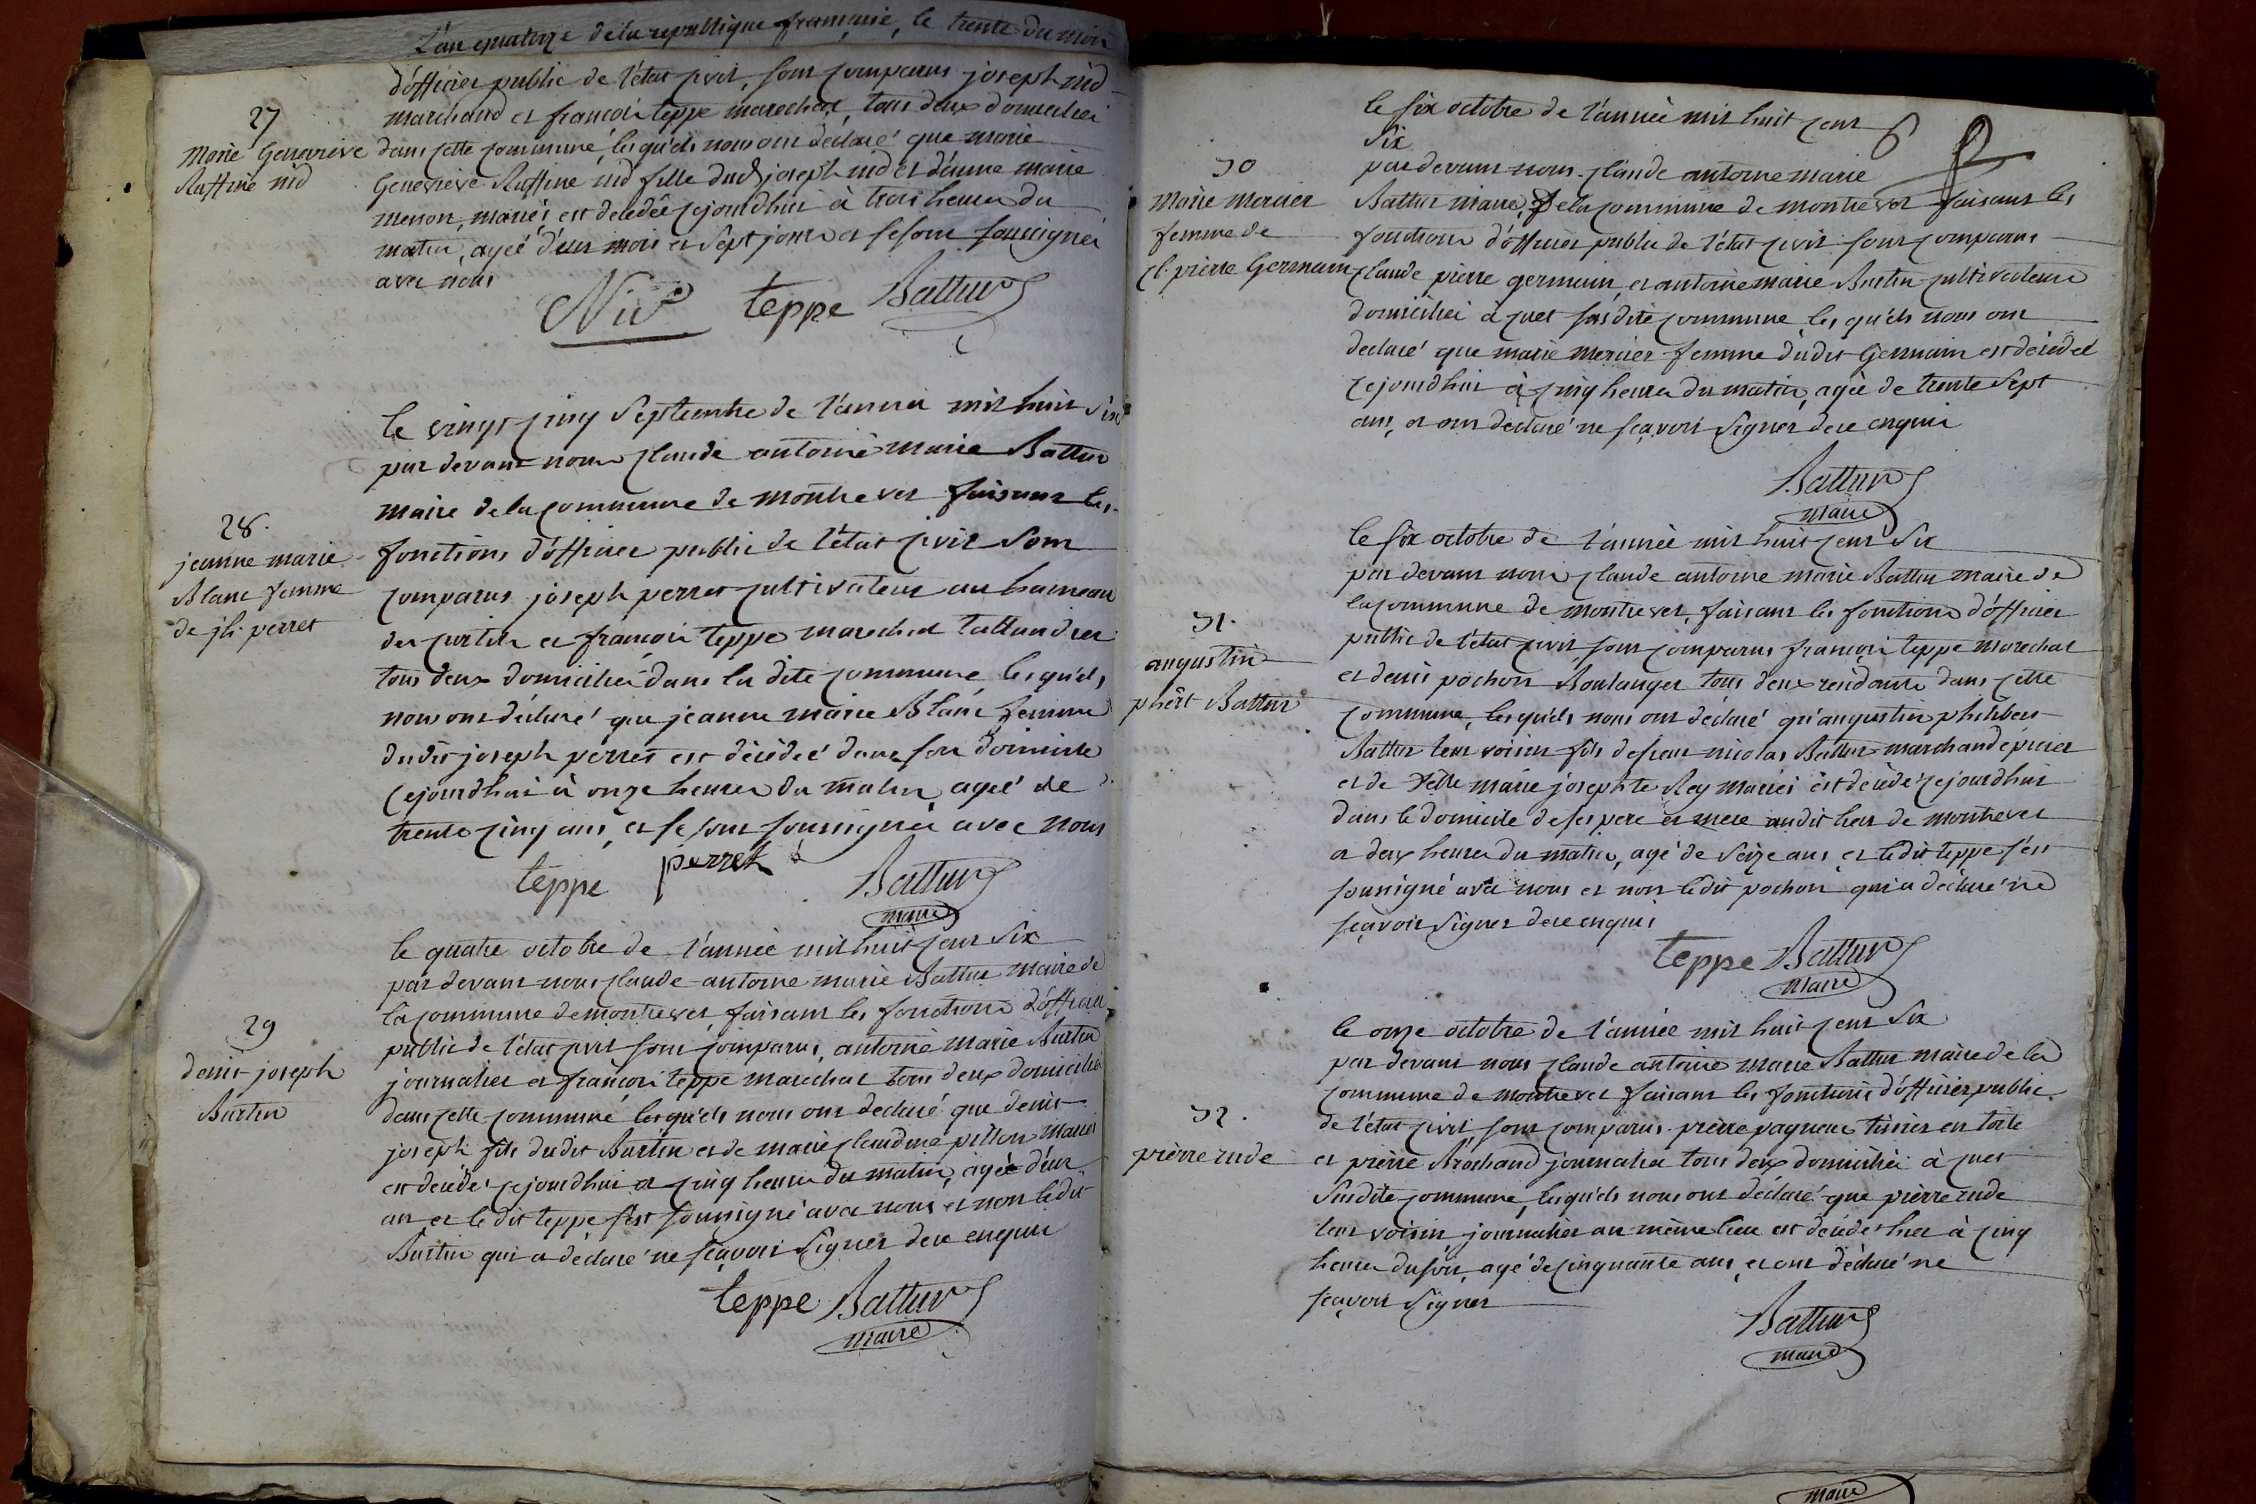 L'an quatorze de la republique françoise, le trente du mois
d'officier public de l'état civil, sont comparus joseph nid
marchand et françois teppe marechal, tous deux domiciliés
27
Marie Genevieve
Ruffine nid
dans cette commune, lesquels nous ont declaré que marie
Genevieve Ruffine nid fille dud. joseph nid et d'anne marie
menon, mariés est decedée cejourdhui à trois heures du
matin, agée d'un mois et sept jours et se sont soussignés
avec nous
Nid teppe Battur
le vingt cinq septembre de l'année mil huit six
par devant nous claude antoine marie Battur
maire de la commune de montrevel faisant les
28.
jeanne marie
Blanc femme
de jh. perret
fonctions d'officier public de l'état civil sont
comparus joseph perret cultivateur au hameau
des curtils et françois teppe marechal tallandier
tous deux domiciliés dans la dite commune, lesquels
nous ont déclaré que jeanne marie Blanc femme
dudit joseph perret est décédée dans son domicile
cejourdhui à onze heures du matin, agée de
trente cinq ans, et se sont soussignés avec nous
teppe perret Battur
maire
le quatre octobre de l'année mil huit cent six
par devant nous claude antoine marie Battur maire de
la commune de montrevel, faisant les fonctions d'officier
29
denis joseph
Burtin
public de l'état civil sont comparus, antoine marie Burtin
journalier et françois teppe marechal tous deux domiciliés
dans cette commune lesquels nous ont declaré que denis
joseph fils dudit Burtin et de marie claudine pillon mariés
est décédé cejourdhui a cinq heures du matin, agée d'un
an, et le dit teppe s'est soussigné avec nous et non ledit
Burtin qui a déclaré ne sçavoir signer de ce enquis
teppe Battur
maire
le six octobre de l'année mil huit cent
six
30
Marie Mercier
femme de
cl. pierre Germain
par devant nous claude antoine marie
Battur maire de la commune de montrevel faisant les
fonctions d'officier public de l'état civil sont comparus
claude pierre germain, et antoine marie Burtin cultivateurs
domiciliés à cette susdite commune lesquels nous ont
declaré que marie mercier femme dudit Germain est décédée
cejourdhui à cinq heures du matin, agée de trente sept
ans, et ont declaré ne sçavoir signer de ce enquis
Battur
maire
le six octobre de l'année mil huit cent six
par devant nous claude antoine marie Battur maire de
la commune de montrevel, faisant les fonctions d'officier
31.
augustin
phert Battur
public de l'état civil sont comparus françois teppe marechal
et denis pochon Boulanger tous deux residants dans cette
commune, lesquels nous ont declaré qu'augustin philibert
Battur leur voisin fils de sieur nicolas Battur marchand épicier
et de delle marie josephte Rey mariés est décédé cejourdhui
dans le domicile de ses pere et mere audit lieu de montrevel
a deux heures du matin, agé de seize ans, et ledit teppe s'est
soussigné avec nous et non ledit pochon qui a déclaré ne
sçavoir signer de ce enquis
teppe Battur
maire
le onze octobre de l'année mil huit cent six
par devant nous claude antoine marie Battur maire de la
commune de montrevel faisant les fonctions d'officier public
32.
pierre rude
de l'état civil sont comparus pierre pagneux tissier en toile
et pierre Brochand journalier tous deux domiciliés à cette
susdite commune, lesquels nous ont déclaré que pierre rude
leur voisin journalier au même lieu est décédé hier à cinq
heures du soir, agé de cinquante ans, et ont déclaré ne
sçavoir signer
Battur
maire
maire